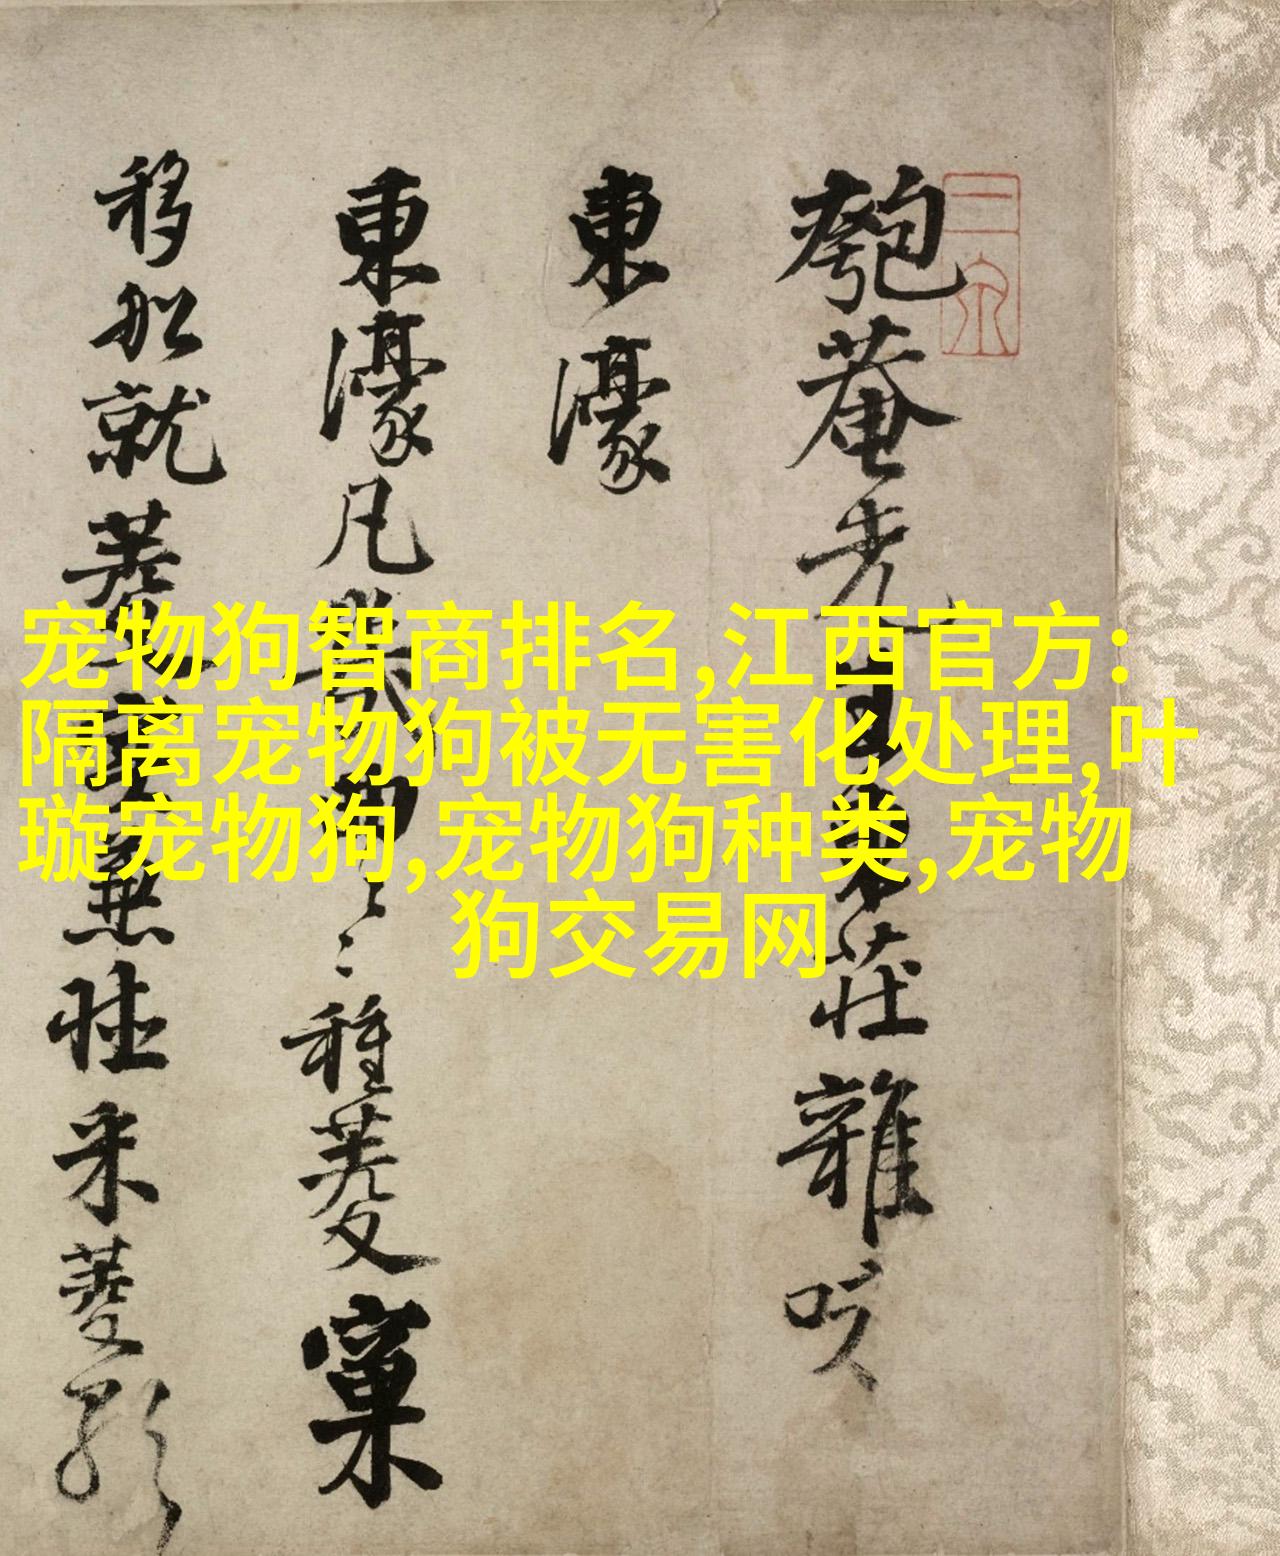 宠物狗智商排名,江西官方:
隔离宠物狗被无害化处理,叶
璇宠物狗,宠物狗种类,宠物
狗交易网
匏菴先莊雜咏
東濠
東濠凡種菱窠
移船就采菱